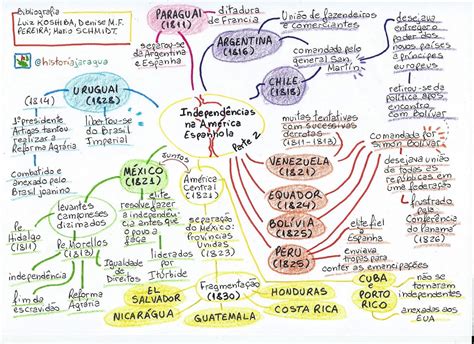 Bibliografia
Luiz KOSHIBA, Denise M.F.
PEREIRA; Mario SCHMIDT.
@historiajaragua
PARAGUAI
(1811)
ditadura
de Francia
separou-se
da Argentina
e Espanha
ARGENTINA
(1816)
União de fazendeiros
e comerciantes
comandada pelo
general San
Martín
CHILE
(1818)
desejava
entregar o
poder dos
novos países
a príncipes
europeus
retirou-se da
política após
encontro
com Bolívar
URUGUAI
(1828)
(1814)
1º presidente
Artigas tentou
realizar a
Reforma Agrária
combatido e
anexado pelo
Brasil joanino
libertou-se
do Brasil
Imperial
Independências
na América
Espanhola
Parte 2
muitas tentativas
com sucessivas
derrotas
(1811-1813)
VENEZUELA
(1821)
EQUADOR
(1824)
BOLÍVIA
(1825)
PERU
(1825)
Comandada por
Simon Bolívar
desejava união
de todas as
repúblicas em
uma federação
frustrado
pela
Conferência
do Panamá
(1826)
elite fiel
a Espanha
enviava
tropas para
conter as emancipações
MÉXICO
(1821)
juntos
América
Central
(1821)
levantes
camponeses
dizimados
Pe.
Hidalgo
(1811)
Pe. Morellos
(1813)
independência
fim da
escravidão
Reforma
Agrária
Igualdade
de
Direitos
elite
resolve fazer
a independên
cia antes que
o povo a
faça
liderados
por
Itúrbide
separação
do México:
Províncias
Unidas
(1823)
Fragmentação
(1830)
EL
SALVADOR
NICARÁGUA
GUATEMALA
HONDURAS
COSTA RICA
CUBA
e
PORTO
RICO
não se
tornaram
independentes
anexados
aos EUA